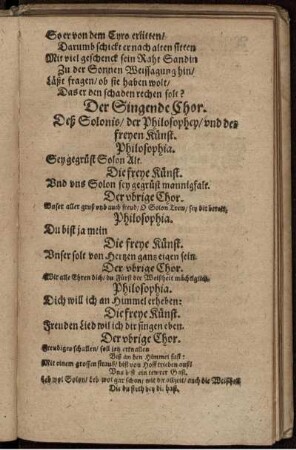 So er von dem Cyro erlitten/
Darumb schickt er nach alten sitten
Mit viel geschenck sein Rähe Sandin
Zu der Sonnen Weissagung hin/
Läßt fragen/ ob sie haben wolt/
Das er den schaden rechen solt?
Der Singende Chor.
Deß Solonis/ der Philosophey/ vnd der
freyen Künst.
Philosophia.
Sey gegrüst Solon Alt.
Die freye Künst.
Vnd vns Solon sey gegrüst mannigfalt.
Der vbrige Chor.
Vnser aller gruß vnd auch freud/ O Solon Trew/ sey dir bereit,
Philosophia.
Du bist ja mein
Die freye Künst.
Vnser solt von Hertzen gantz eigen sein.
Der vbrige Chor.
Wir alle Ehren dich/ du Fürst der Weißheit mächtiglich.
Philosophia.
Dich will ich an Himmel erheben:
Die freye Künst.
Frewden Lied wil ich dir singen eben.
Der vbrige Chor.
Frewdigs schallen/ soll jetz erhallen
Biß an den Himmel fast:
Mit einem grossen strauß/ bist von Hoff trieben auß
Vns bist ein lewrer Gast.
Leb wol Solon/ Leb wol gar schon/ mit dir allzeit/ auch die Weißheit
Die du stets bey dir hast.